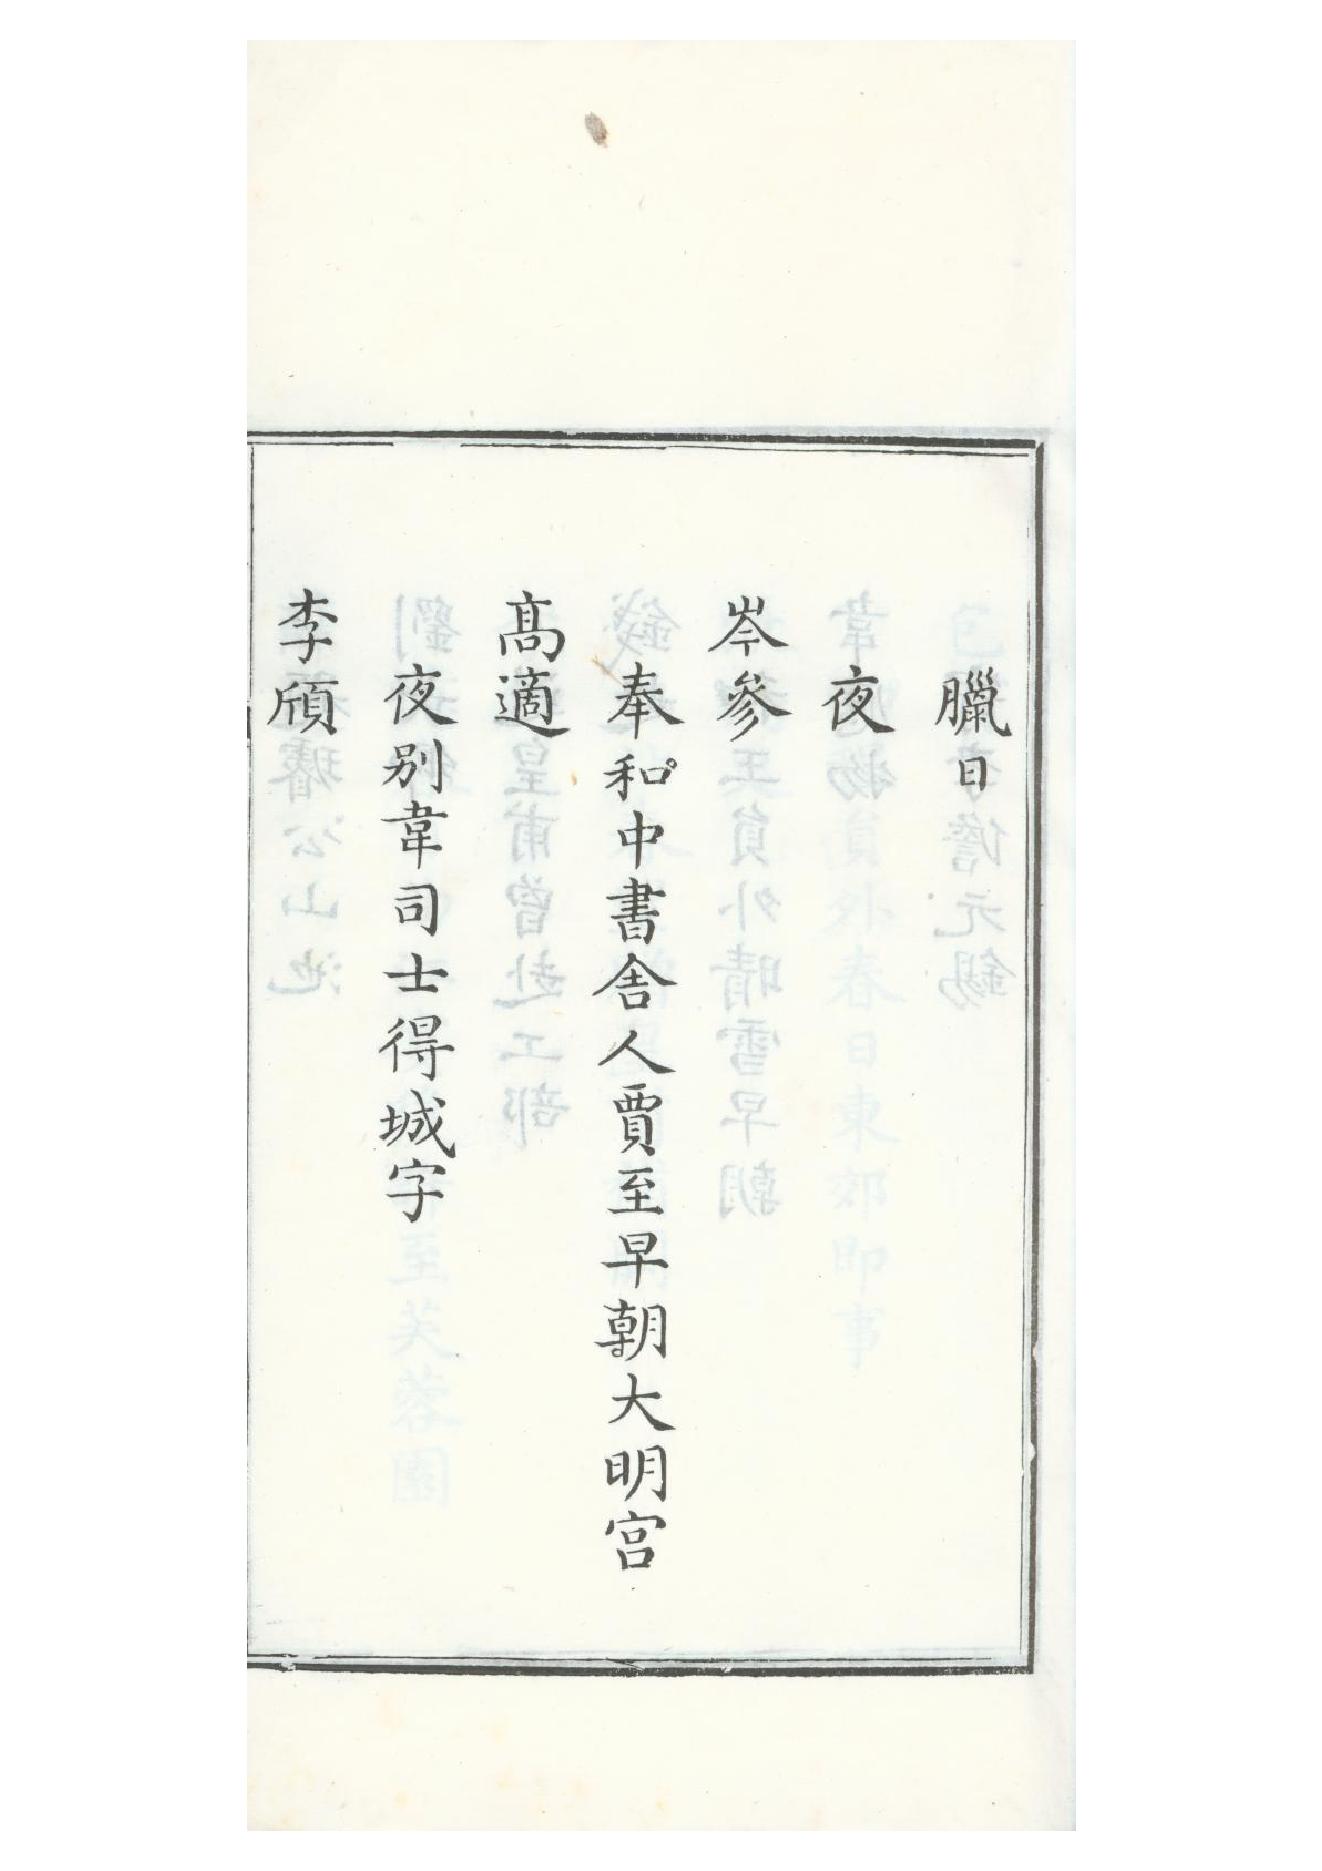 臘日
夜
岑參
奉和中書舍人賈至早朝大明宮
高適
夜别韋司士得城字
李頎